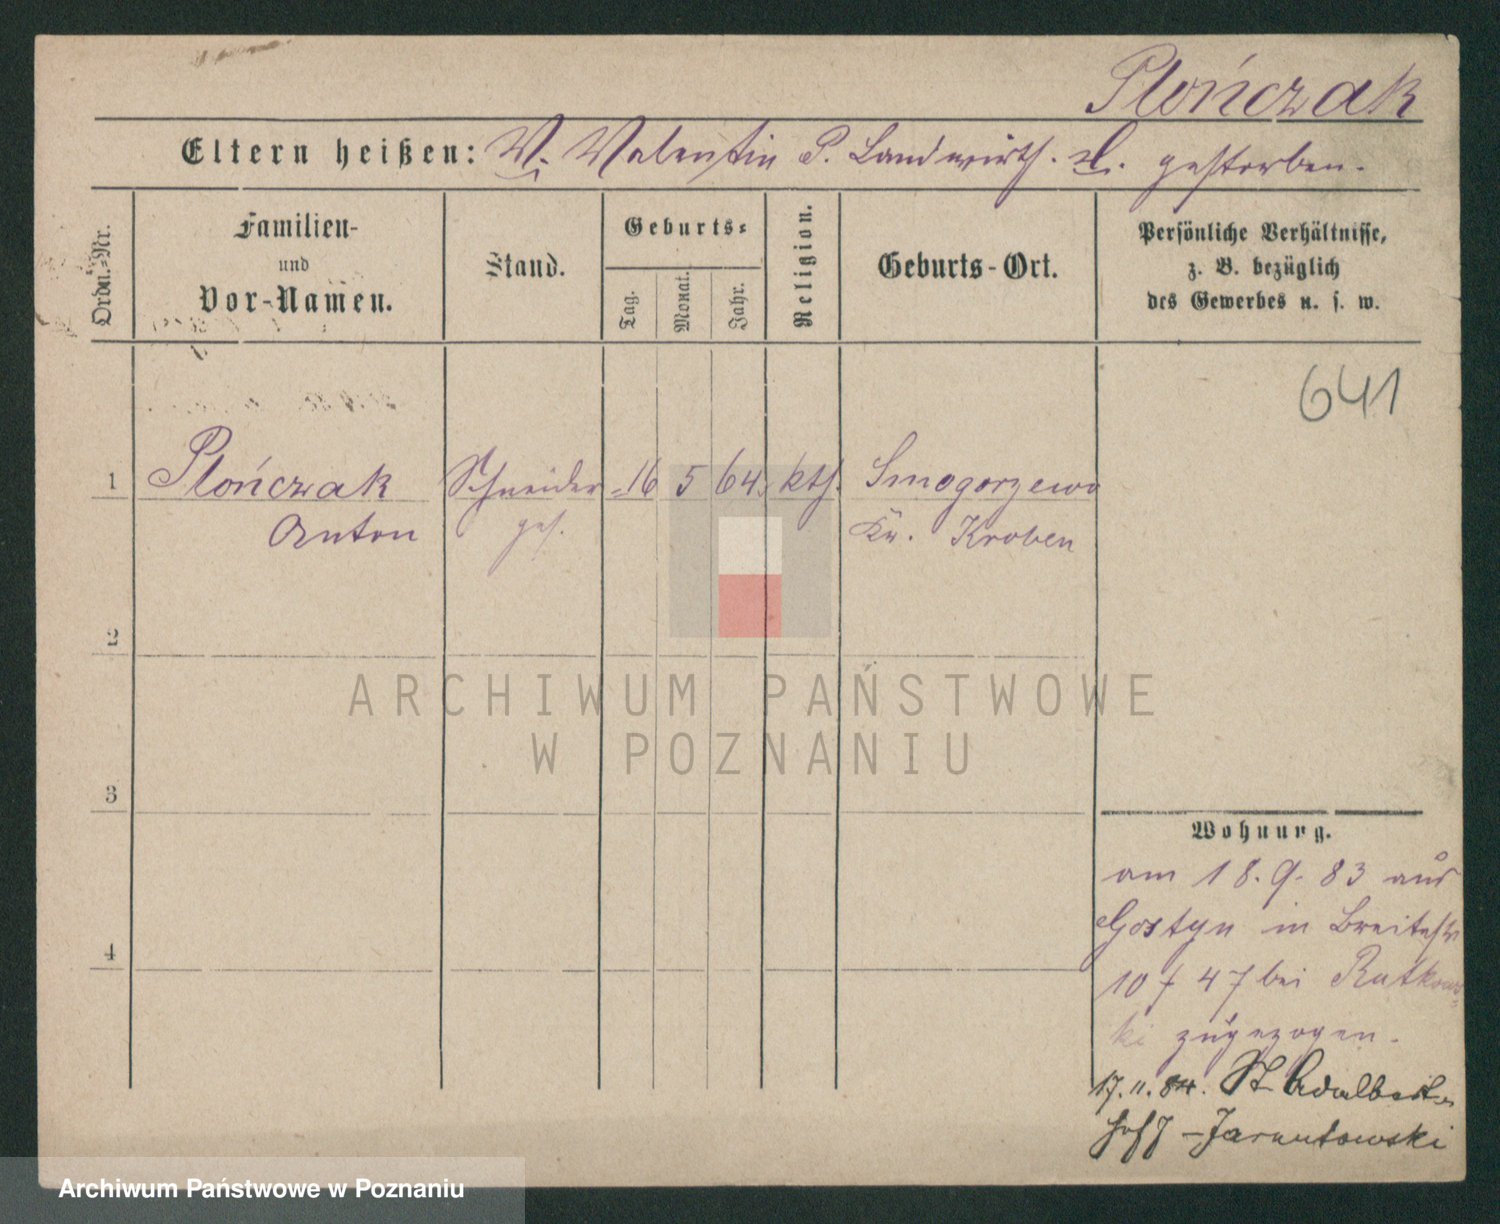 Płończak
Eltern heißen: V. Valentin P. Landwirth. M. gestorben.
Ordn.-Nr.
Familien-
und
Vor-Namen.
Stand.
Geburts-
Tag.
Monat.
Jahr.
Religion.
Geburts-Ort.
Persönliche Verhältnisse,
z. B. bezüglich
des Gewerbes u. s. w.
641
1 Płończak Schneider 16 5 64. kth. Smogorzewo
Anton ges. Kr. Kroben
2
3
4
ARCHIWUM PAŃSTWOWE
W POZNANIU
Wohnung.
am 18. 9. 83 aus
Gostyn in Breitestr
10 f 47 bei Rutkows-
ki zugezogen.
17. 11. 84. St Adalbert
Jarantowski
Archiwum Państwowe w Poznaniu